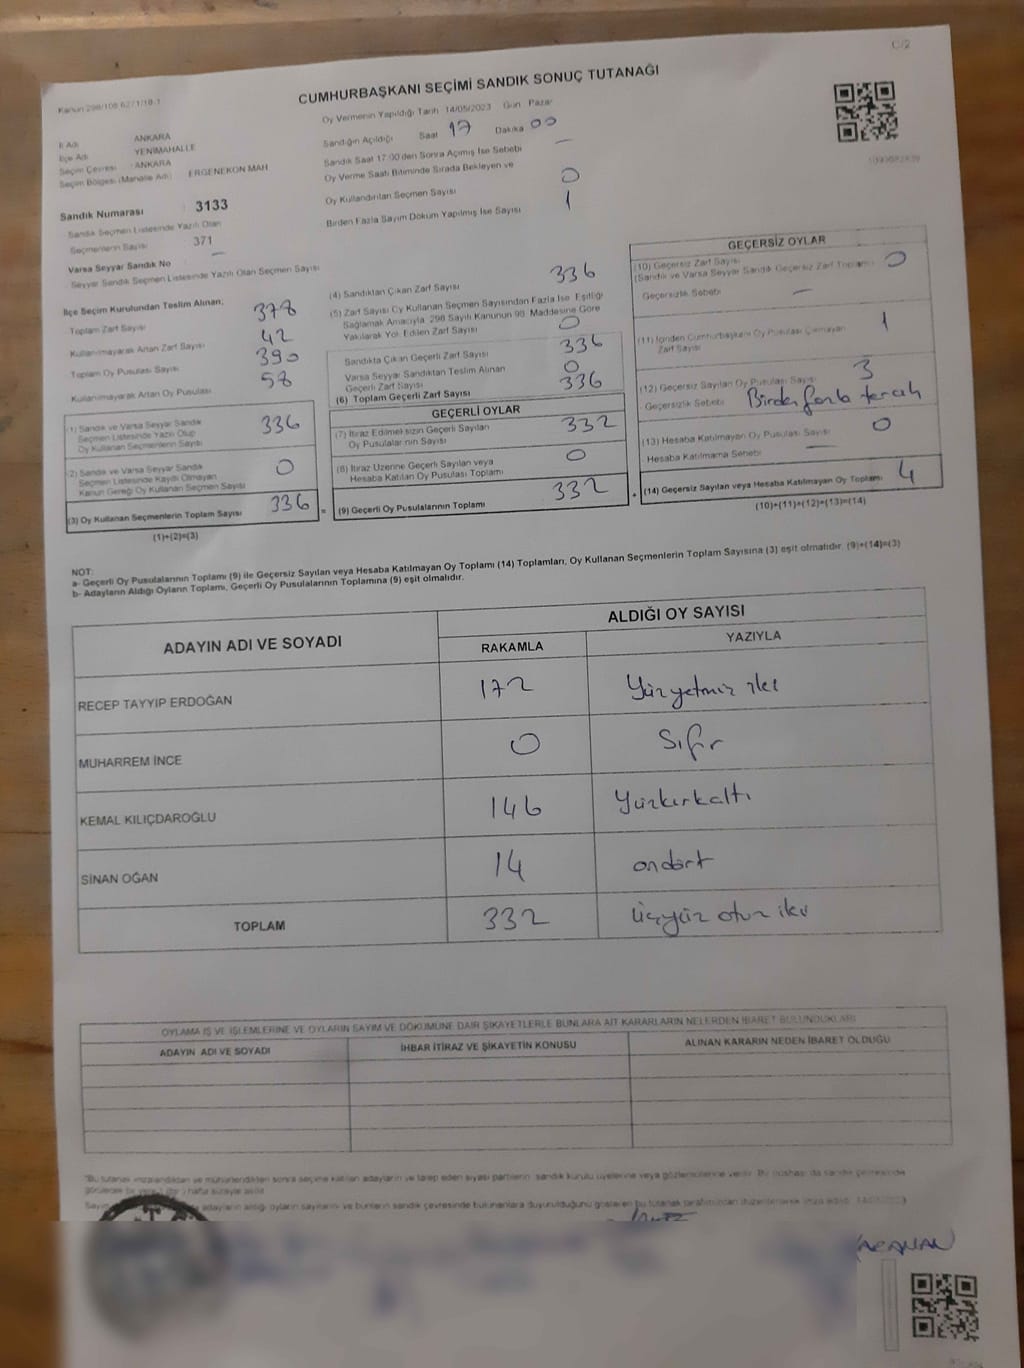 C/2
Kanun 298/106 62/1/18-1
CUMHURBAŞKANI SEÇİMİ SANDIK SONUÇ TUTANAĞI
İl Adı ANKARA
İlçe Adı YENİMAHALLE
Seçim Çevresi : ANKARA
Seçim Bölgesi (Mahalle Adı) ERGENEKON MAH
Sandık Numarası : 3133
Sandık Seçmen Listesinde Yazılı Olan
Seçmenlerin Sayısı 371
Varsa Seyyar Sandık No —
Seyyar Sandık Seçmen Listesinde Yazılı Olan Seçmen Sayısı
Oy Vermenin Yapıldığı Tarih 14/05/2023 Gün Pazar
Sandığın Açıldığı Saat 17 Dakika 00
Sandık Saat 17:00'den Sonra Açımış İse Sebebi —
Oy Verme Saati Bitiminde Sırada Bekleyen ve
Oy Kullandırılan Seçmen Sayısı 0
Birden Fazla Sayım Döküm Yapılmış İse Sayısı 1
İlçe Seçim Kurulundan Teslim Alınan;
Toplam Zarf Sayısı 378
Kullanılmayarak Artan Zarf Sayısı 42
Toplam Oy Pusulası Sayısı 390
Kullanılmayarak Artan Oy Pusulası 58
(1) Sandık ve Varsa Seyyar Sandık
Seçmen Listesinde Yazılı Olup
Oy Kullanan Seçmenlerin Sayısı 336
(2) Sandık ve Varsa Seyyar Sandık
Seçmen Listesinde Kayıtlı Olmayan
Kanun Gereği Oy Kullanan Seçmen Sayısı 0
(3) Oy Kullanan Seçmenlerin Toplam Sayısı 336 =
(1)+(2)=(3)
(4) Sandıktan Çıkan Zarf Sayısı 336
(5) Zarf Sayısı Oy Kullanan Seçmen Sayısından Fazla İse, Eşitliği
Sağlamak Amacıyla, 298 Sayılı Kanunun 98. Maddesine Göre
Yakılarak Yok Edilen Zarf Sayısı 0
Sandıkta Çıkan Geçerli Zarf Sayısı 336
Varsa Seyyar Sandıktan Teslim Alınan
Geçerli Zarf Sayısı 0
(6) Toplam Geçerli Zarf Sayısı 336
GEÇERLİ OYLAR
(7) İtiraz Edilmeksizin Geçerli Sayılan
Oy Pusulalarının Sayısı 332
(8) İtiraz Üzerine Geçerli Sayılan veya
Hesaba Katılan Oy Pusulası Toplamı 0
(9) Geçerli Oy Pusulalarının Toplamı 332 +
GEÇERSİZ OYLAR
(10) Geçersiz Zarf Sayısı
(Sandık ve Varsa Seyyar Sandık Geçersiz Zarf Toplamı) 0
Geçersizlik Sebebi —
(11) İçinden Cumhurbaşkanı Oy Pusulası Çıkmayan
Zarf Sayısı 1
(12) Geçersiz Sayılan Oy Pusulası Sayısı 3
Geçersizlik Sebebi Birden fazla tercih
(13) Hesaba Katılmayan Oy Pusulası Sayısı 0
Hesaba Katılmama Sebebi —
(14) Geçersiz Sayılan veya Hesaba Katılmayan Oy Toplamı 4
(10)+(11)+(12)+(13)=(14)
NOT:
a- Geçerli Oy Pusulalarının Toplamı (9) ile Geçersiz Sayılan veya Hesaba Katılmayan Oy Toplamı (14) Toplamları, Oy Kullanan Seçmenlerin Toplam Sayısına (3) eşit olmalıdır. (9)+(14)=(3)
b- Adayların Aldığı Oyların Toplamı, Geçerli Oy Pusulalarının Toplamına (9) eşit olmalıdır.
ADAYIN ADI VE SOYADI
ALDIĞI OY SAYISI
RAKAMLA YAZIYLA
RECEP TAYYIP ERDOĞAN 172 Yüzyetmiş iki
MUHARREM İNCE 0 Sıfır
KEMAL KILIÇDAROĞLU 146 Yüzkırkaltı
SİNAN OĞAN 14 ondört
TOPLAM 332 Üçyüz otuz iki
OYLAMA İŞ VE İŞLEMLERİNE VE OYLARIN SAYIM VE DÖKÜMÜNE DAİR ŞİKAYETLERLE BUNLARA AİT KARARLARIN NELERDEN İBARET BULUNDUKLARI
ADAYIN ADI VE SOYADI İHBAR İTİRAZ VE ŞİKAYETİN KONUSU ALINAN KARARIN NEDEN İBARET OLDUĞU
"Bu tutanak imzalandıktan ve mühürlendikten sonra seçime katılan adayların ve talep eden siyasi partilerin sandık kurulu üyelerine veya gözlemcilerine verilir. Bu nüshası da sandık çevresinde
adayların aldığı oyların sayılarını ve bunların sandık çevresinde bulunanlara duyurulduğunu gösteren bu tutanak tarafımızdan düzenlenerek imza edildi.